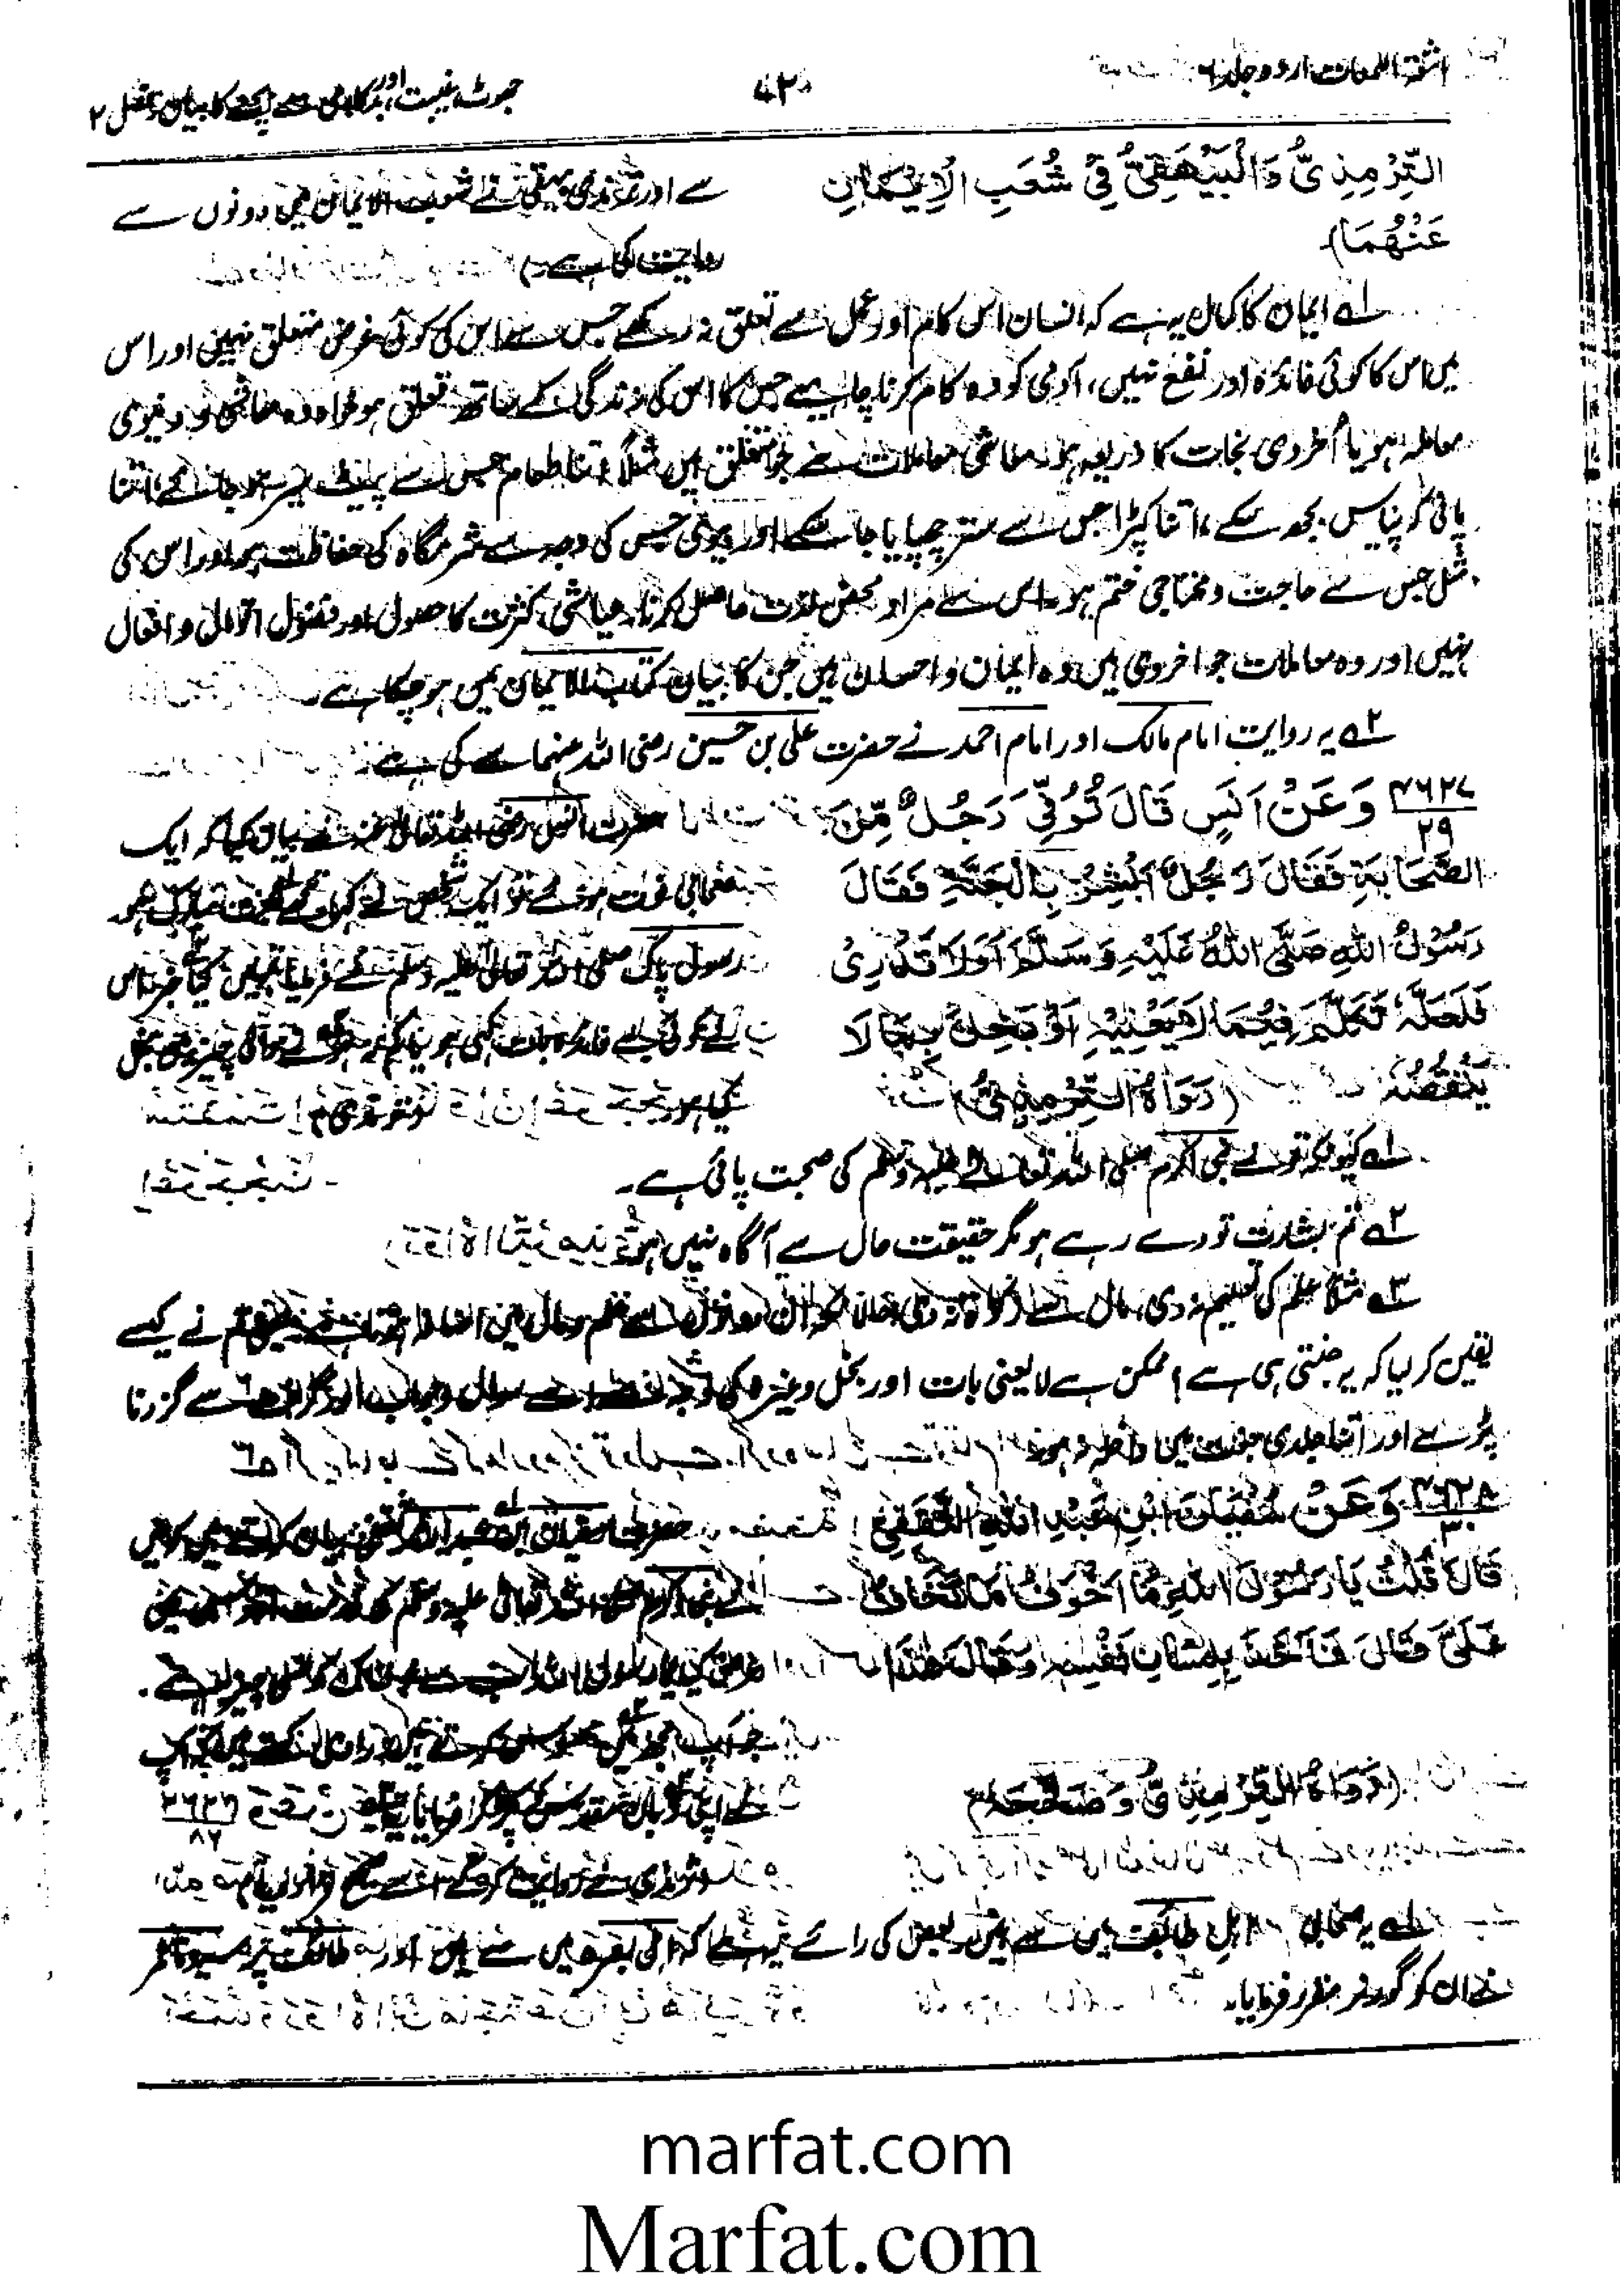 اشعۃ اللمعات اردو جلد ۶
۴۲۰
جھوٹ، غیبت اور بدکلامی سے بچنے کا بیان، فصل ۲
التِّرْمِذِيُّ وَالْبَيْهَقِيُّ فِيْ شُعَبِ الْاِيْمَانِ
عَنْهُمَا)
سے اور ترمذی بیہقی نے شعب الایمان میں دونوں سے
روایت کی ہے۔)
۱ے ایمان کا کمال یہ ہے کہ انسان اس کام اور عمل سے تعلق نہ رکھے جس سے اس کی کوئی غرض متعلق نہیں اور اس
میں اس کا کوئی فائدہ اور نفع نہیں، آدمی کو وہ کام کرنا چاہیے جس کا اس کی زندگی کے ساتھ تعلق ہو خواہ وہ معاشی و دنیوی
معاملہ ہو یا اُخروی نجات کا ذریعہ ہو۔ معاشی معاملات سے جو متعلق ہیں مثلاً اتنا طعام جس سے پیٹ سیر ہو جائے، اتنا
پانی کہ پیاس بجھ سکے، اتنا کپڑا جس سے ستر چھپایا جا سکے اور بیوی جس کی وجہ سے شرمگاہ کی حفاظت ہو اور اس کی
مثل جس سے حاجت و محتاجی ختم ہو۔ اس سے مراد محض لذت حاصل کرنا، عیاشی، کثرت کا حصول اور فضول اقوال و افعال
نہیں اور وہ معاملات جو اخروی ہیں وہ ایمان و احسان ہیں جن کا بیان کتاب الایمان میں ہو چکا ہے۔
۲ے یہ روایت امام مالک اور امام احمد نے حضرت علی بن حسین رضی اللہ عنہما سے کی ہے۔
۴۶۲۷
۲۹
وَعَنْ اَنَسٍ قَالَ تُوُفِّيَ رَجُلٌ مِّنَ
الصَّحَابَةِ فَقَالَ رَجُلٌ اَبْشِرْ بِالْجَنَّةِ فَقَالَ
رَسُوْلُ اللهِ صَلَّى اللهُ عَلَيْهِ وَسَلَّمَ اَوَلَا تَدْرِيْ
فَلَعَلَّهٗ تَكَلَّمَ فِيْمَا لَا يَعْنِيْهِ اَوْ بَخِلَ بِمَا لَا
يَنْقُصُهٗ (رَوَاهُ التِّرْمِذِيُّ)
حضرت انس رضی اللہ تعالیٰ عنہ نے بیان کیا کہ ایک
صحابی فوت ہوئے تو ایک شخص نے کہا تجھے جنت مبارک ہو
رسول پاک صلی اللہ تعالیٰ علیہ وسلم نے فرمایا تمہیں کیا خبر اس
نے کوئی بے فائدہ بات کہی ہو یا کم نہ ہونے والی چیز میں بخل
کیا ہو۔ (ترمذی)
۱ے کیونکہ تو نے نبی اکرم صلی اللہ تعالےٰ علیہ وسلم کی صحبت پائی ہے۔
۲ے تم بشارت تو دے رہے ہو مگر حقیقت حال سے آگاہ نہیں ہو۔
۳ے مثلاً علم کی تعلیم نہ دی، مال سے زکوٰۃ نہ دی حالانکہ ان دونوں سے علم و مال میں اضافہ تم نے کیسے
یقین کر لیا کہ یہ جنتی ہی ہے؟ ممکن ہے لایعنی بات اور بخل وغیرہ کی وجہ سے اسے سوال و جواب اور سے گزرنا
پڑے اور اتنا جلدی جنت میں داخلہ نہ ہو۔
۴۶۲۸
۳۰
وَعَنْ سُفْيَانَ ابْنِ عَبْدِ اللهِ الثَّقَفِيِّ
قَالَ قُلْتُ يَا رَسُوْلَ اللهِ مَا اَخْوَفُ مَا تَخَافُ
عَلَيَّ قَالَ فَاَخَذَ بِلِسَانِ نَفْسِهٖ وَقَالَ هٰذَا
(رَوَاهُ التِّرْمِذِيُّ وَصَحَّحَهٗ)
حضرت سفیان ابن عبد اللہ ثقفی بیان کرتے ہیں کہ میں
نے نبی اکرم صلی اللہ تعالیٰ علیہ وسلم کی خدمت میں
عرض کیا یا رسول اللہ! سب سے کون سی چیز ہے
جو آپ مجھ پر آپ
نے اپنی زبان مقدس پکڑ کر فرمایا یہ
(ترمذی نے روایت کر کے اسے صحیح قرار دیا)
۱ے یہ صحابی اہل طائف میں سے ہیں۔ بعض کی رائے یہ ہے کہ اہل بصرہ میں سے ہیں اور طائف پر سیدنا عمر
نے ان کو گورنر مقرر فرمایا۔
marfat.com
Marfat.com